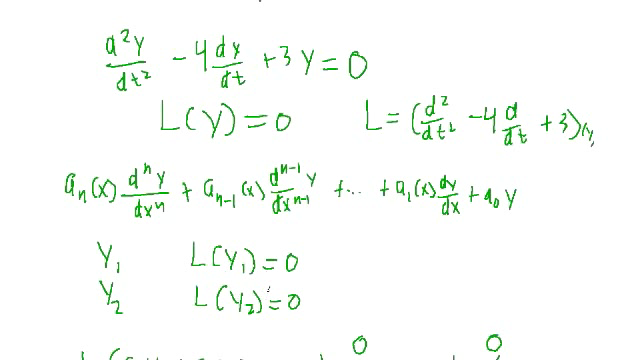 d²y/dt² - 4 dy/dt + 3y = 0
L(y) = 0    L = (d²/dt² - 4 d/dt + 3)(y)
aₙ(x) dⁿy/dxⁿ + aₙ₋₁(x) dⁿ⁻¹y/dxⁿ⁻¹ + ... + a₁(x) dy/dx + a₀ y
y₁    L(y₁) = 0
y₂    L(y₂) = 0
0    0